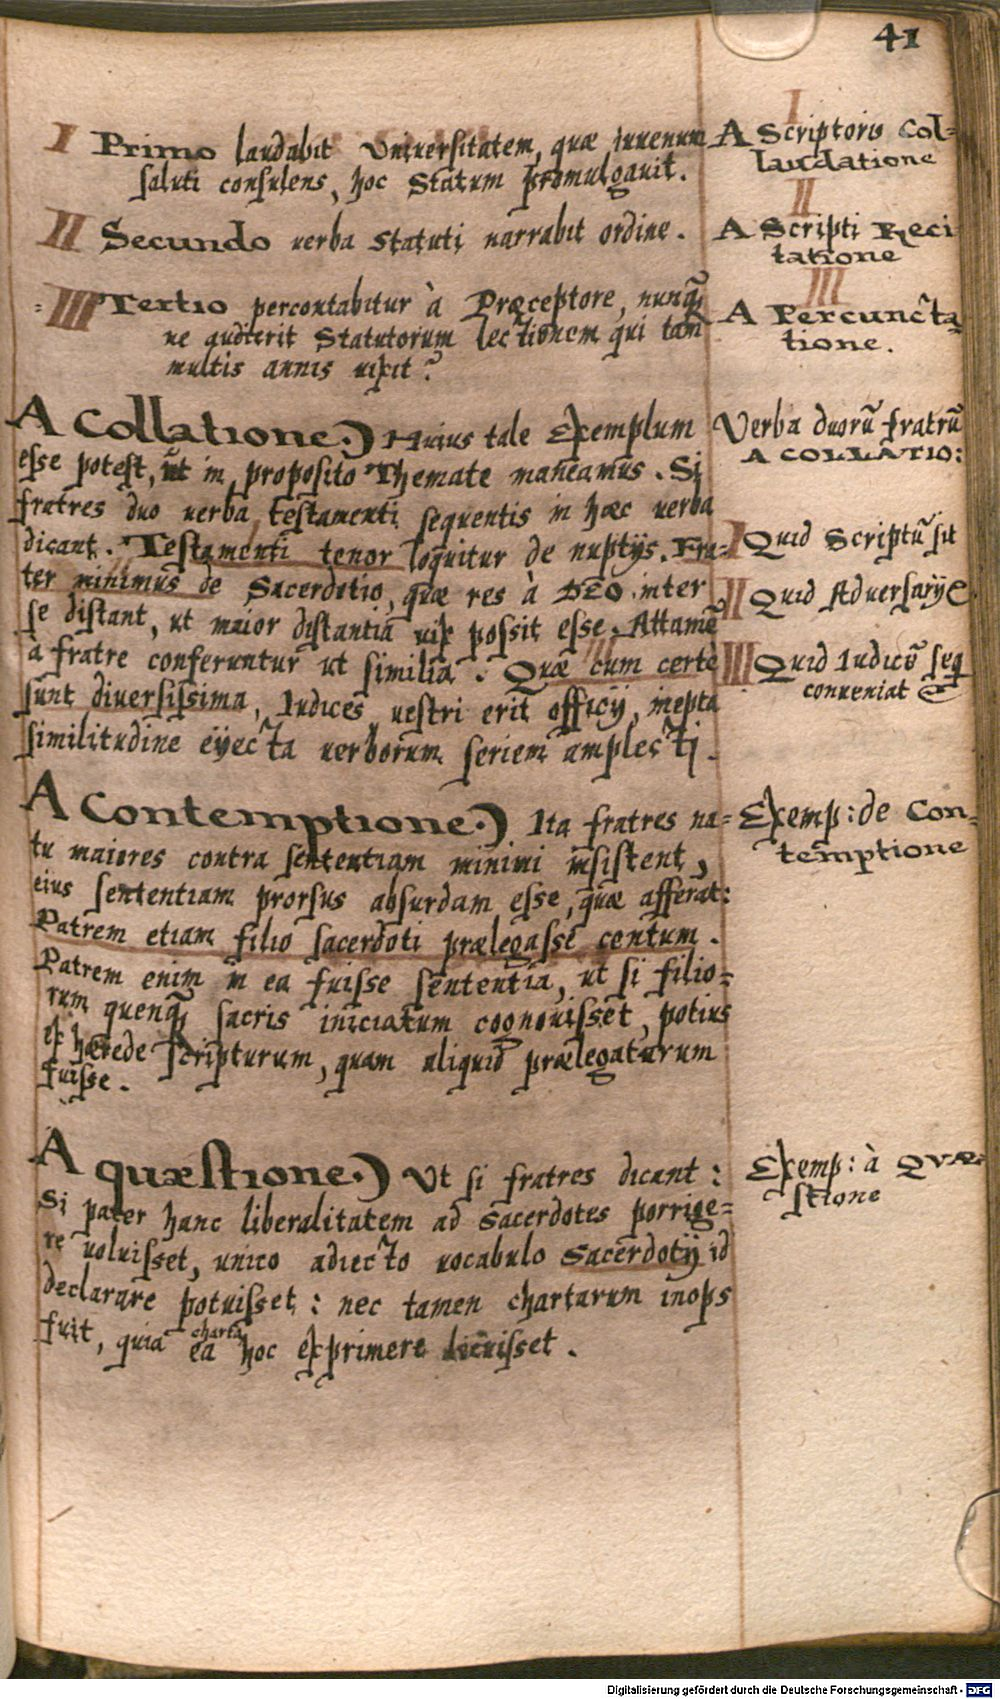 41
I Primo laudabit Vniuersitatem, quæ iuuenum
saluti consulens, hoc Statum promulgauit.
II Secundo uerba Statuti narrabit ordine.
III Tertio percontabitur à Præceptore, nunq̃
ne audierit Statutorum lectionem qui tam
multis annis uixit?
A Collatione.) Huius tale Exemplum
esse potest, ut in proposito Themate maneamus. Si
fratres duo uerba testamenti sequentis in hæc uerba
dicant. Testamenti tenor loquitur de nuptijs. Fra=
ter minimus de Sacerdotio, quæ res à DEO inter
se distant, ut maior distantia uix possit esse. Attamẽ
a fratre conferuntur ut similia. Quæ cum certe
sunt diuersissima, Iudices uestri erit officij, inepta
similitudine eijecta uerborum seriem amplecti.
A Contemptione.) Ita fratres na=
tu maiores contra sententiam minimi insistent,
eius sententiam prorsus absurdam esse, quæ afferat:
Patrem etiam filio sacerdoti prælegasse centum.
Patrem enim in ea fuisse sententia, ut si filio=
rum quenq̃ sacris iniciatum cognouisset, potius
exhærede scripturum, quam aliquid prælegaturum
fuisse.
A quæstione.) Vt si fratres dicant:
Si pater hanc liberalitatem ad Sacerdotes porrige=
re uoluisset, unico adiecto uocabulo Sacerdotij id
declarare potuisset: nec tamen chartarum inops
fuit, quia
charta
ea hoc exprimere licuisset.
I
A Scriptoris Col=
laudatione
II
A Scripti Reci
tatione
III
A Percuncta
tione.
Verba duorũ fratrũ
A COLLATIO:
I Quid Scriptũ sit
II Quid Aduersarij
III Quid Iudicẽ seq
conueniat
Exemp: de Con=
temptione
Exemp: à Quæ=
stione
Digitalisierung gefördert durch die Deutsche Forschungsgemeinschaft - DFG